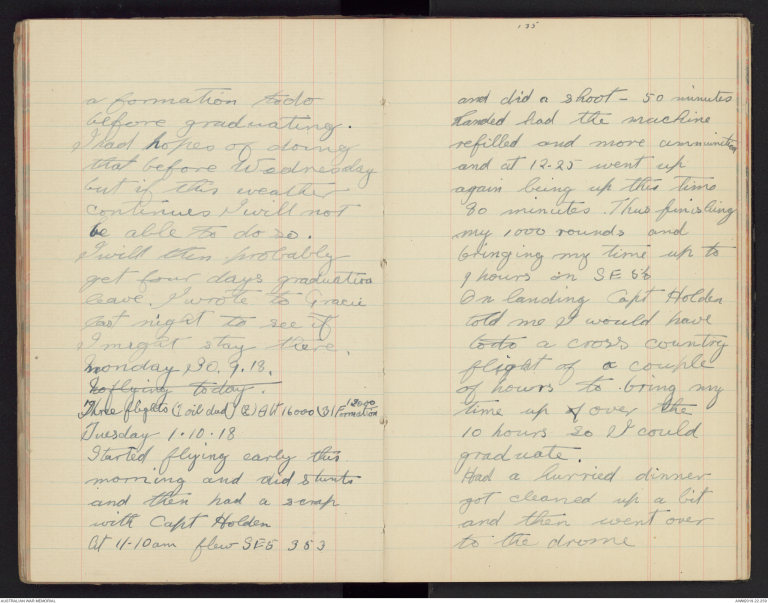 a formation to do
before graduating.
I had hopes of doing
that before Wednesday
but if this weather
continues I will not
be able to do so.
I will then probably
get four days graduation
leave. I wrote to Gracie
last night to see if
I might stay there.
Monday 30.9.18.
No flying today.
Three flights (1 oil dud) (2) Alt 16000 (3) Formation 12000
Tuesday 1.10.18
Started flying early this
morning and did stunts
and then had a scrap
with Capt Holden
At 11-10 am flew SE5 353
135
and did a shoot - 50 minutes
Landed had the machine
refilled and more ammunition
and at 12-25 went up
again being up this time
30 minutes. Thus finishing
my 1000 rounds and
bringing my time up to
9 hours in SE 5s
On landing Capt Holden
told me I would have
to do a cross country
flight of a couple
of hours to bring my
time up over the
10 hours so I could
graduate.
Had a hurried dinner
got cleaned up a bit
and then went over
to the drome
AUSTRALIAN WAR MEMORIAL